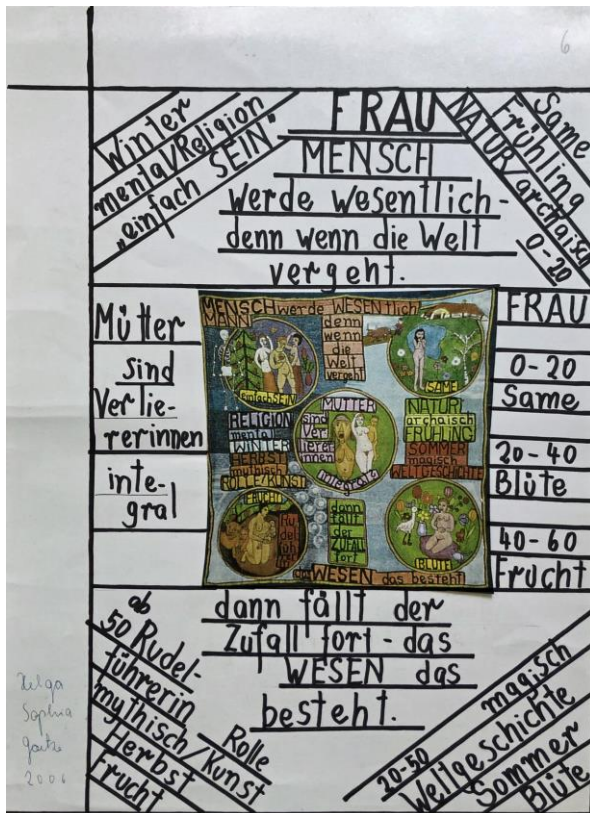 6
FRAU
MENSCH
werde wesentlich -
denn wenn die Welt
vergeht.
Winter
mental/Religion
„einfach SEIN"
Same
Frühling
NATUR/archaisch
0-20
Mütter
sind
Verlie-
rerinnen
inte-
gral
MENSCH werde WESENtlich
denn
wenn
die
Welt
vergeht
einfach SEIN
SAME
RELIGION
mental
WINTER
HERBST
mythisch
ROLLE/KUNST
MÜTTER
sind
Ver
lierer
innen
integral
NATUR
archaisch
FRÜHLING
SOMMER
magisch
WELTGESCHICHTE
FRUCHT
Ru
del
füh
dann
fällt
der
ZUFALL
fort
BLÜTE
das WESEN das besteht
FRAU
0-20
Same
20-40
Blüte
40-60
Frucht
dann fällt der
Zufall fort - das
WESEN das
besteht.
ab
50 Rudel-
führerin
mythisch/Kunst
Rolle
Herbst
Frucht
magisch
20-50
Weltgeschichte
Sommer
Blüte
Helga
Sophia
Goetze
2006